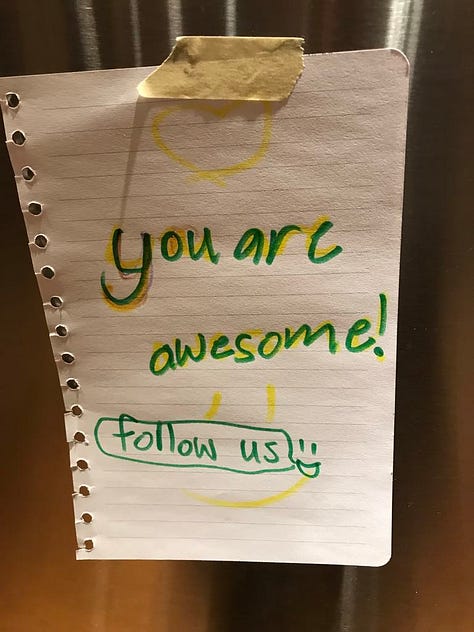 you are
awesome!
follow us